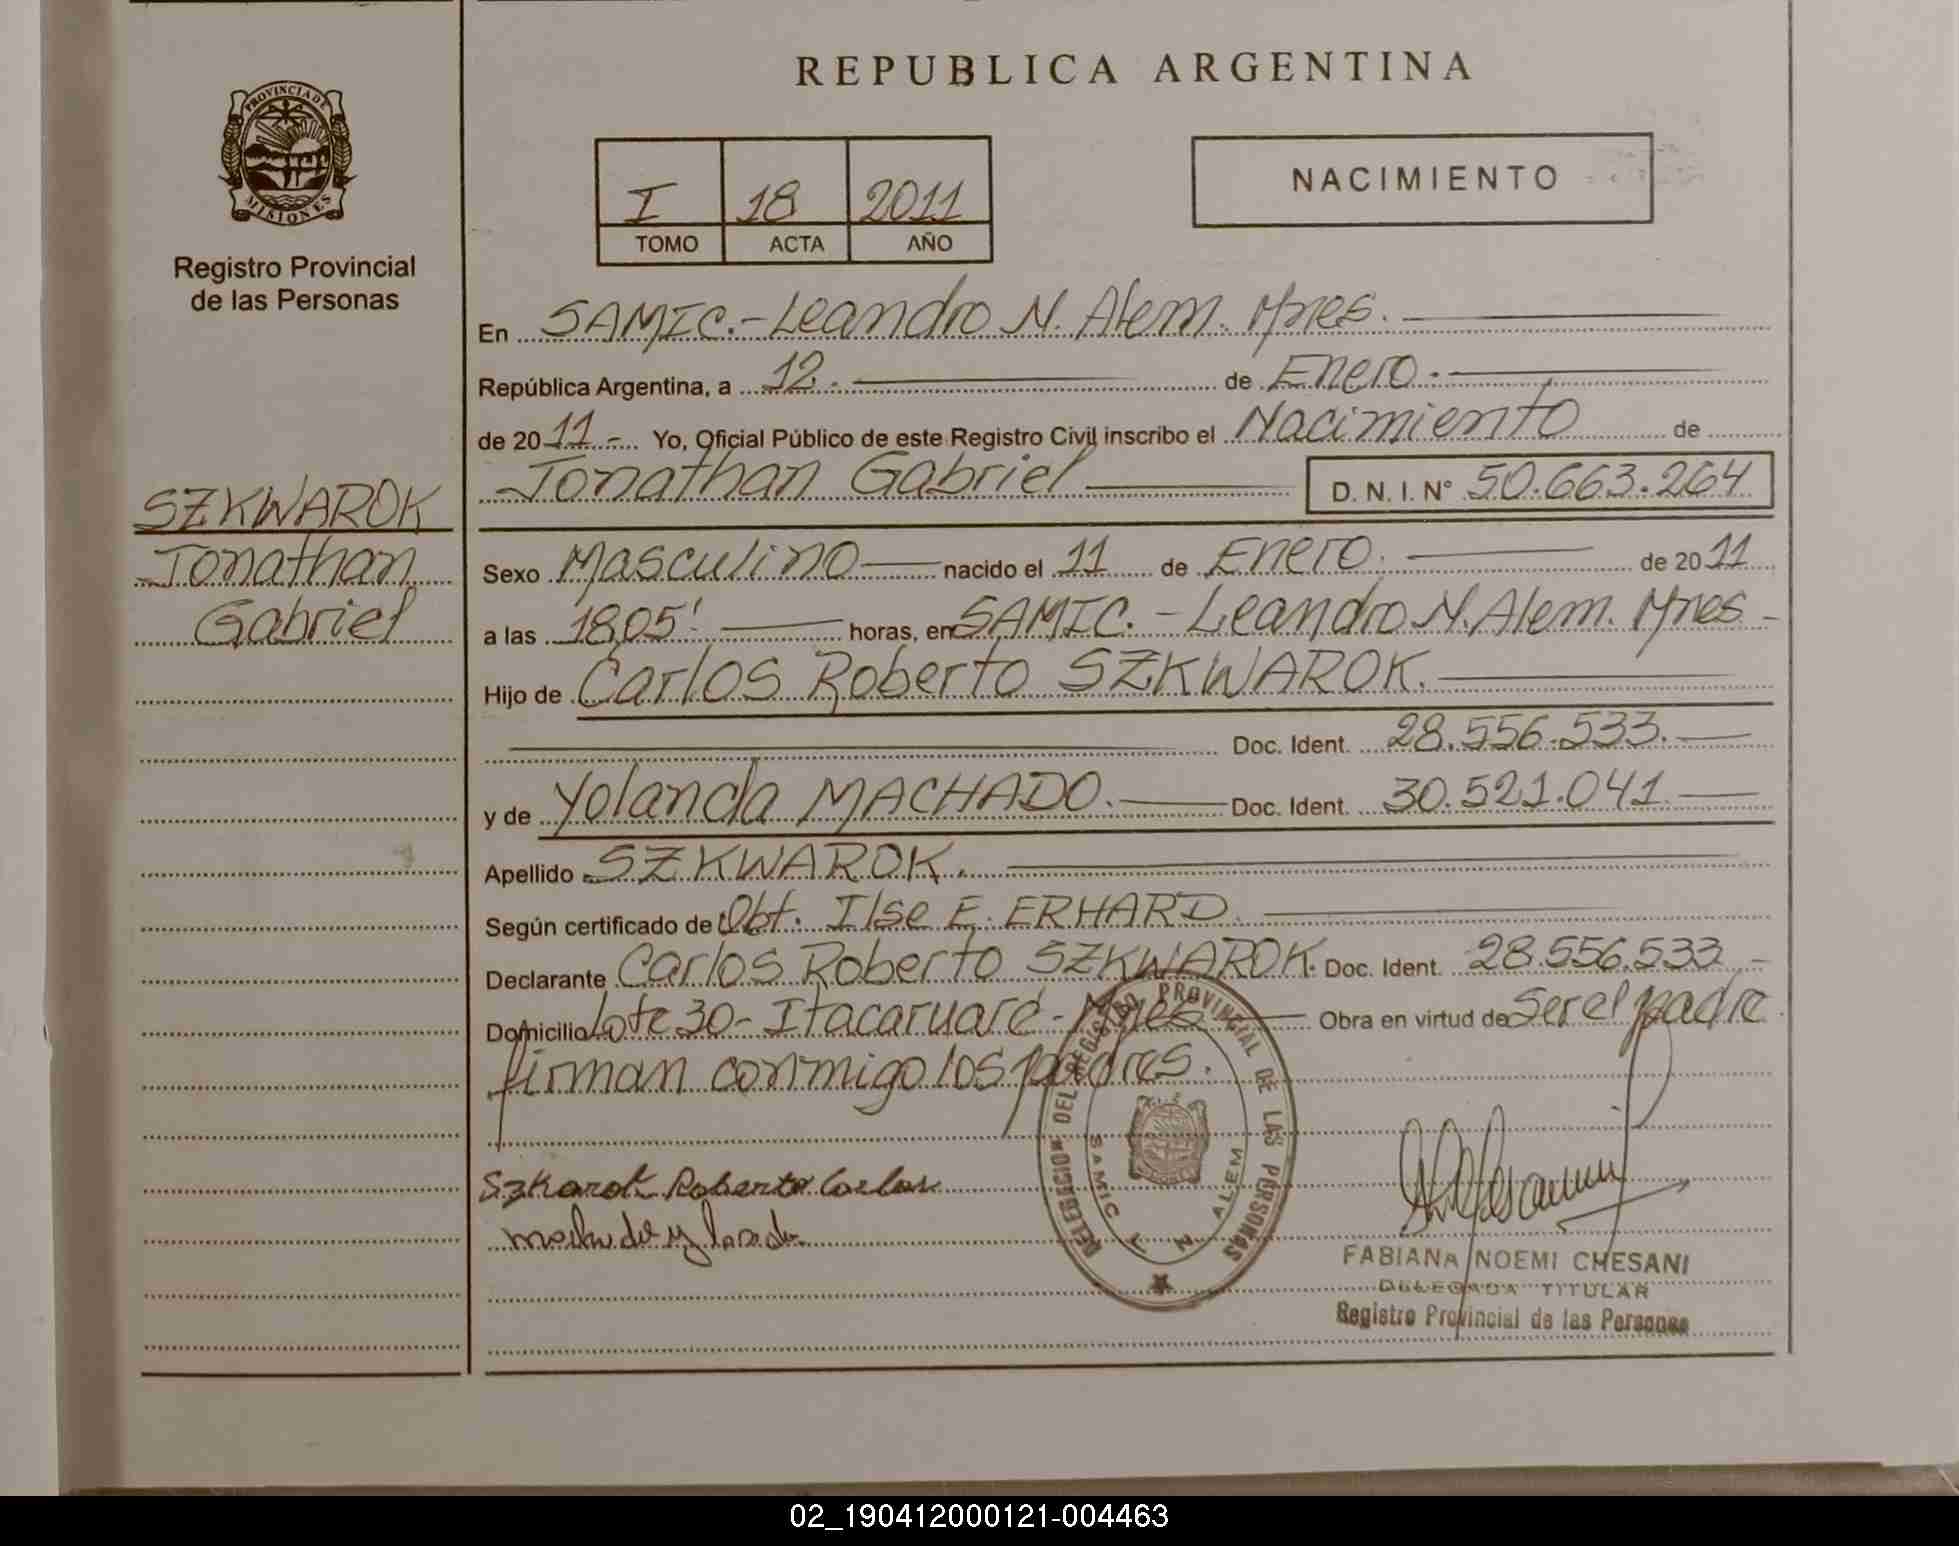 PROVINCIA DE
MISIONES
Registro Provincial
de las Personas
SZKWAROK
Jonathan
Gabriel
REPUBLICA ARGENTINA
I 18 2011
TOMO ACTA AÑO
NACIMIENTO
En SAMIC.-Leandro N. Alem. Mnes.
República Argentina, a 12. de Enero.
de 2011.- Yo, Oficial Público de este Registro Civil inscribo el Nacimiento de
Jonathan Gabriel D. N. I. N° 50.663.264
Sexo Masculino nacido el 11 de Enero. de 2011
a las 18,05' horas, en SAMIC. - Leandro N. Alem. Mnes -
Hijo de Carlos Roberto SZKWAROK.
Doc. Ident. 28.556.533.
y de Yolanda MACHADO. Doc. Ident. 30.521.041
Apellido SZKWAROK.
Según certificado de Obt. Ilse E. ERHARD.
Declarante Carlos Roberto SZKWAROK. Doc. Ident. 28.556.533 -
Domicilio Lote 30- Itacaruaré - Mnes Obra en virtud de Ser el padre
firman conmigo los padres.
Szkarok Roberto Carlos
DELEGACION DEL REGISTRO PROVINCIAL DE LAS PERSONAS
SAMIC L N ALEM
FABIANA NOEMI CHESANI
DELEGADA TITULAR
Registro Provincial de las Personas
02_190412000121-004463